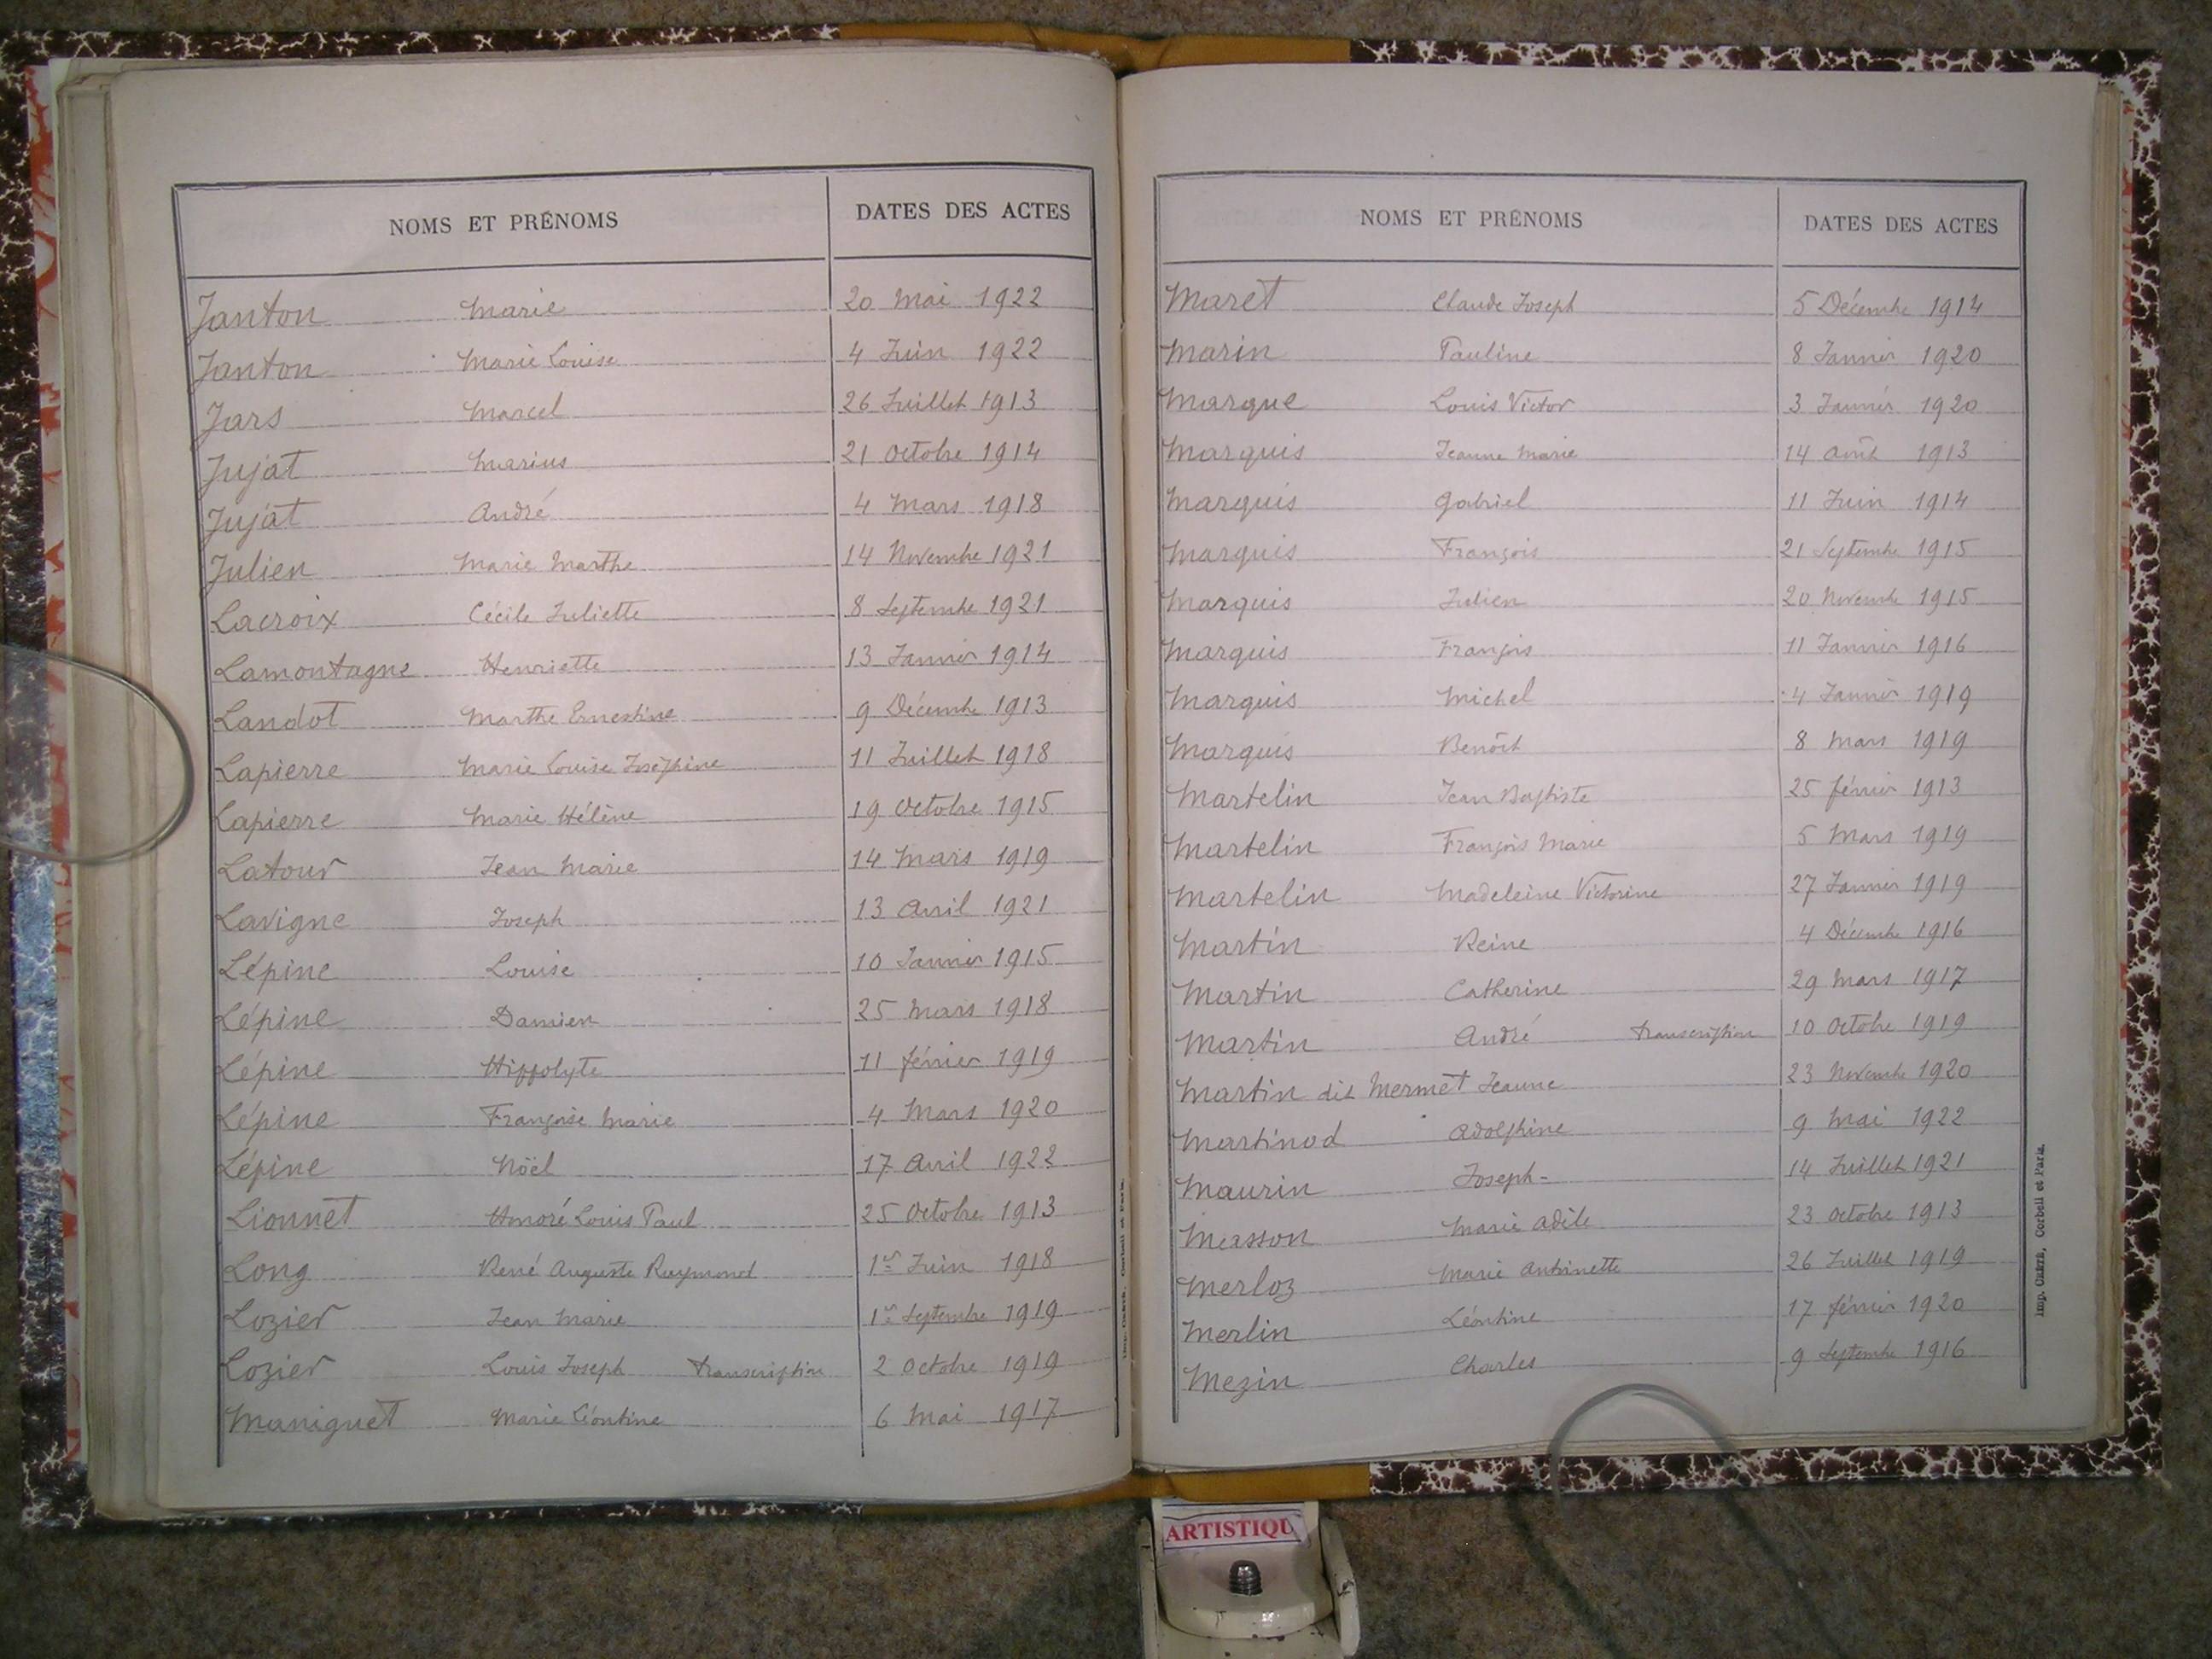 NOMS ET PRÉNOMS DATES DES ACTES
Janton Marie 20 Mai 1922
Janton Marie Louise 4 Juin 1922
Jars Marcel 26 Juillet 1913
Jujat Marius 21 Octobre 1914
Jujat André 4 Mars 1918
Julien Marie Marthe 14 Novembre 1921
Lacroix Cécile Juliette 8 Septembre 1921
Lamontagne Henriette 13 Janvier 1914
Landot Marthe Ernestine 9 Décembre 1913
Lapierre Marie Louise Joséphine 11 Juillet 1918
Lapierre Marie Hélène 19 Octobre 1915
Latour Jean Marie 14 Mars 1919
Lavigne Joseph 13 Avril 1921
Lépine Louise 10 Janvier 1915
Lépine Damien 25 Mars 1918
Lépine Hippolyte 11 février 1919
Lépine Françoise Marie 4 Mars 1920
Lépine Nöel 17 Avril 1922
Lionnet Honoré Louis Paul 25 Octobre 1913
Long René Auguste Raymond 1er Juin 1918
Lozier Jean Marie 1er Septembre 1919
Lozier Louis Joseph transcription 2 Octobre 1919
Maniguet Marie Léontine 6 Mai 1917
NOMS ET PRÉNOMS DATES DES ACTES
Maret Claude Joseph 5 Décembre 1914
Marin Pauline 8 Janvier 1920
Marque Louis Victor 3 Janvier 1920
Marquis Jeanne Marie 14 Août 1913
Marquis Gabriel 11 Juin 1914
Marquis François 21 Septembre 1915
Marquis Julien 20 Novembre 1915
Marquis François 11 Janvier 1916
Marquis Michel 4 Janvier 1919
Marquis Benoît 8 Mars 1919
Martelin Jean Baptiste 25 février 1913
Martelin François Marie 5 Mars 1919
Martelin Madeleine Victorine 27 Janvier 1919
Martin Reine 4 Décembre 1916
Martin Catherine 29 Mars 1917
Martin André transcription 10 Octobre 1919
Martin dit Mermet Jeanne 23 Novembre 1920
Martinod Adolphine 9 Mai 1922
Maurin Joseph 14 Juillet 1921
Masson Marie Adèle 23 Octobre 1913
Merloz Marie Antoinette 26 Juillet 1919
Merlin Léontine 17 février 1920
Mezin Charles 9 Septembre 1916
Corbeil et Paris.
ARTISTIQU